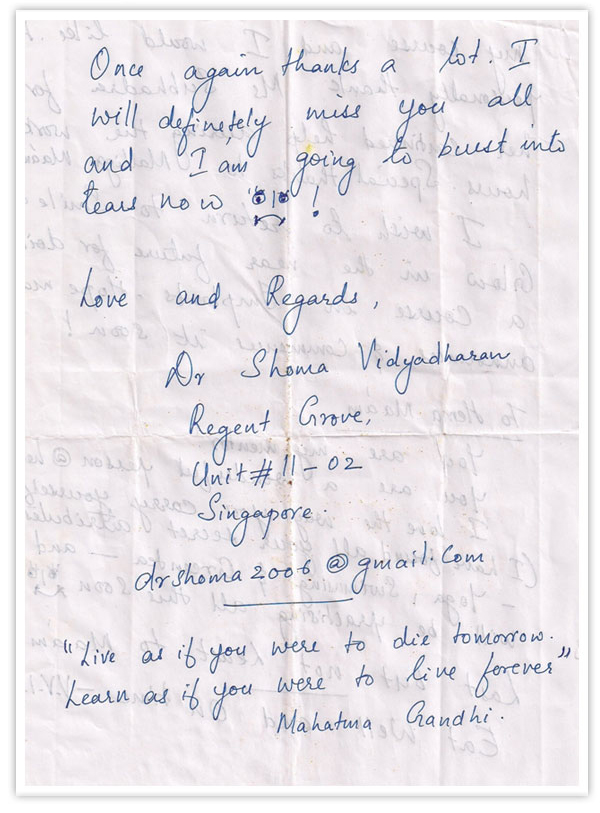 Once again thanks a lot. I
will definetely miss you all
and I am going to burst into
tears now !
Love and Regards,
Dr Shoma Vidyadharan
Regent Grove,
Unit # 11-02
Singapore.
drshoma2006@gmail.com
"Live as if you were to die tomorrow.
Learn as if you were to live forever"
Mahatma Gandhi.